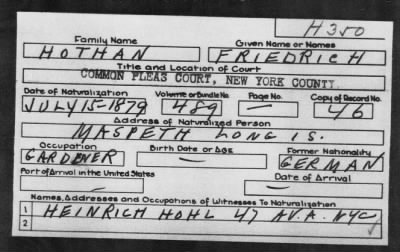 H350
Family Name Given Name or Names
HOTHAN FRIEDRICH
Title and Location of Court
COMMON PLEAS COURT, NEW YORK COUNTY
Date of Naturalization Volume or Bundle No. Page No. Copy of Record No.
JULY 15-1879 489 — 46
Address of Naturalized Person
MASPETH LONG IS.
Occupation Birth Date or Age Former Nationality
GARDENER — GERMAN
Port of Arrival in the United States Date of Arrival
— —
Names, Addresses and Occupations of Witnesses To Naturalization
1 HEINRICH HOHL 47 AV. A. NYC
2